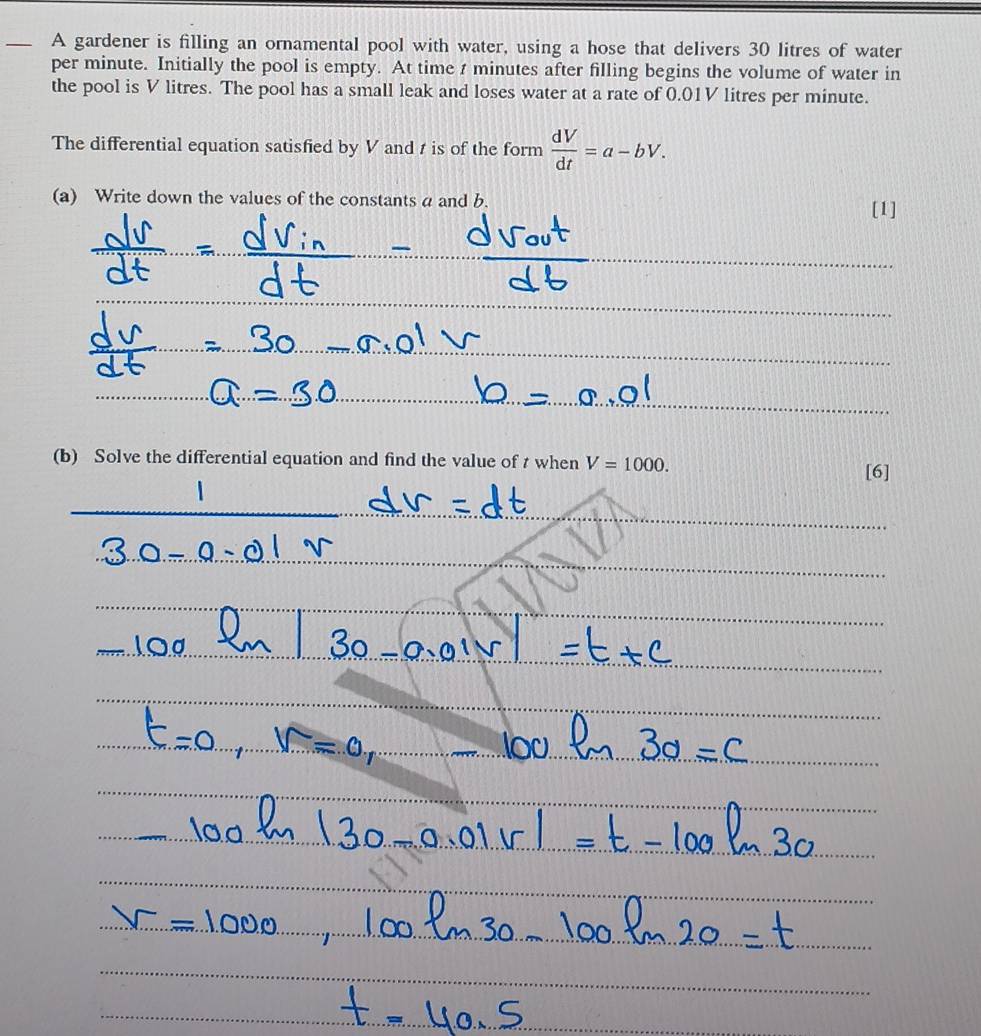 A gardener is filling an ornamental pool with water, using a hose that delivers 30 litres of water
per minute. Initially the pool is empty. At time t minutes after filling begins the volume of water in
the pool is V litres. The pool has a small leak and loses water at a rate of 0.01V litres per minute.
The differential equation satisfied by V and t is of the form dV/dt = a – bV.
(a) Write down the values of the constants a and b. [1]
dv/dt = dvin/dt - dvout/dt
dv/dt = 30 - 0.01 v
a = 30 b = 0.01
(b) Solve the differential equation and find the value of t when V = 1000. [6]
1/(30-0.01 v) dv = dt
-100 ln | 30 - 0.01v | = t + c
t=0, v=0, - 100 ln 30 = c
- 100 ln |30 - 0.01v| = t - 100 ln 30
v = 1000, 100 ln 30 - 100 ln 20 = t
t = 40.5